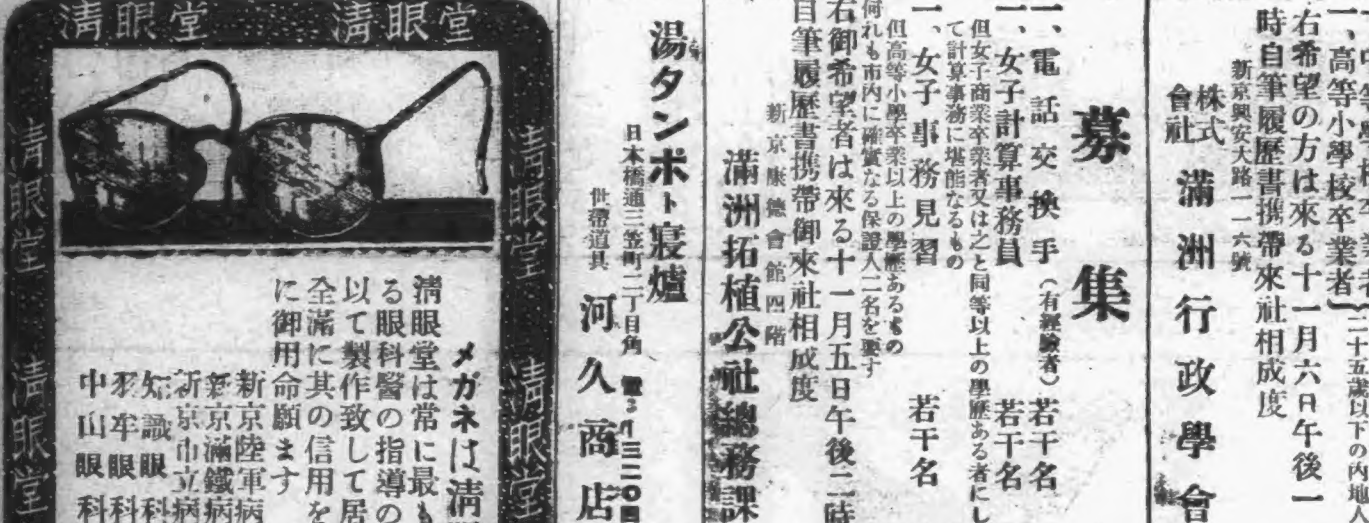 一、高等小學校卒業者
二十五歲以下の內地人
右希望の方は來る十一月六日午後一
時自筆履歷書携帶來社相成度
新京興安大路一一六號
株式會社
滿洲行政學會
募集
一、電話交換手（有經驗者）若干名
一、女子計算事務員 若干名
但女子商業卒業者又は之と同等以上の學歷ある者にし
て計算事務に堪能なるもの
一、女子事務見習 若干名
但高等小學卒業以上の學歷あるもの
何れも市內に確實なる保證人二名を要す
右御希望者は來る十一月五日午後二時
自筆履歷書携帶御來社相成度
新京康德會館四階
滿洲拓植公社總務課
湯タンポト寢爐
日本橋通三笠町二丁目角
世帶道具
河久商店
淸眼堂
淸眼堂
淸眼堂
淸眼堂
淸眼堂
淸眼堂
メガネは淸
淸眼堂は常に最も
る眼科醫の指導の
以て製作致して居
全滿に其の信用を
に御用命願ます
新京陸軍病
新京滿鐵病
新京市立病
知識眼科
中山眼科